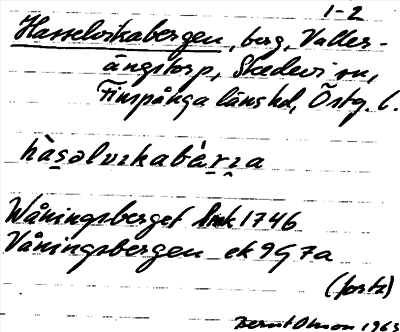 1-2
Hasselvikabergen, berg, Valler-
ängstorp, Skedevi sn,
Finspånga läns hd, Östg. l.
hàsəlvıkabǽrɪa
Wåningsberget lmk 1746
Våningsbergen ek 9G7a
(forts)
Bernt Olsson 1963